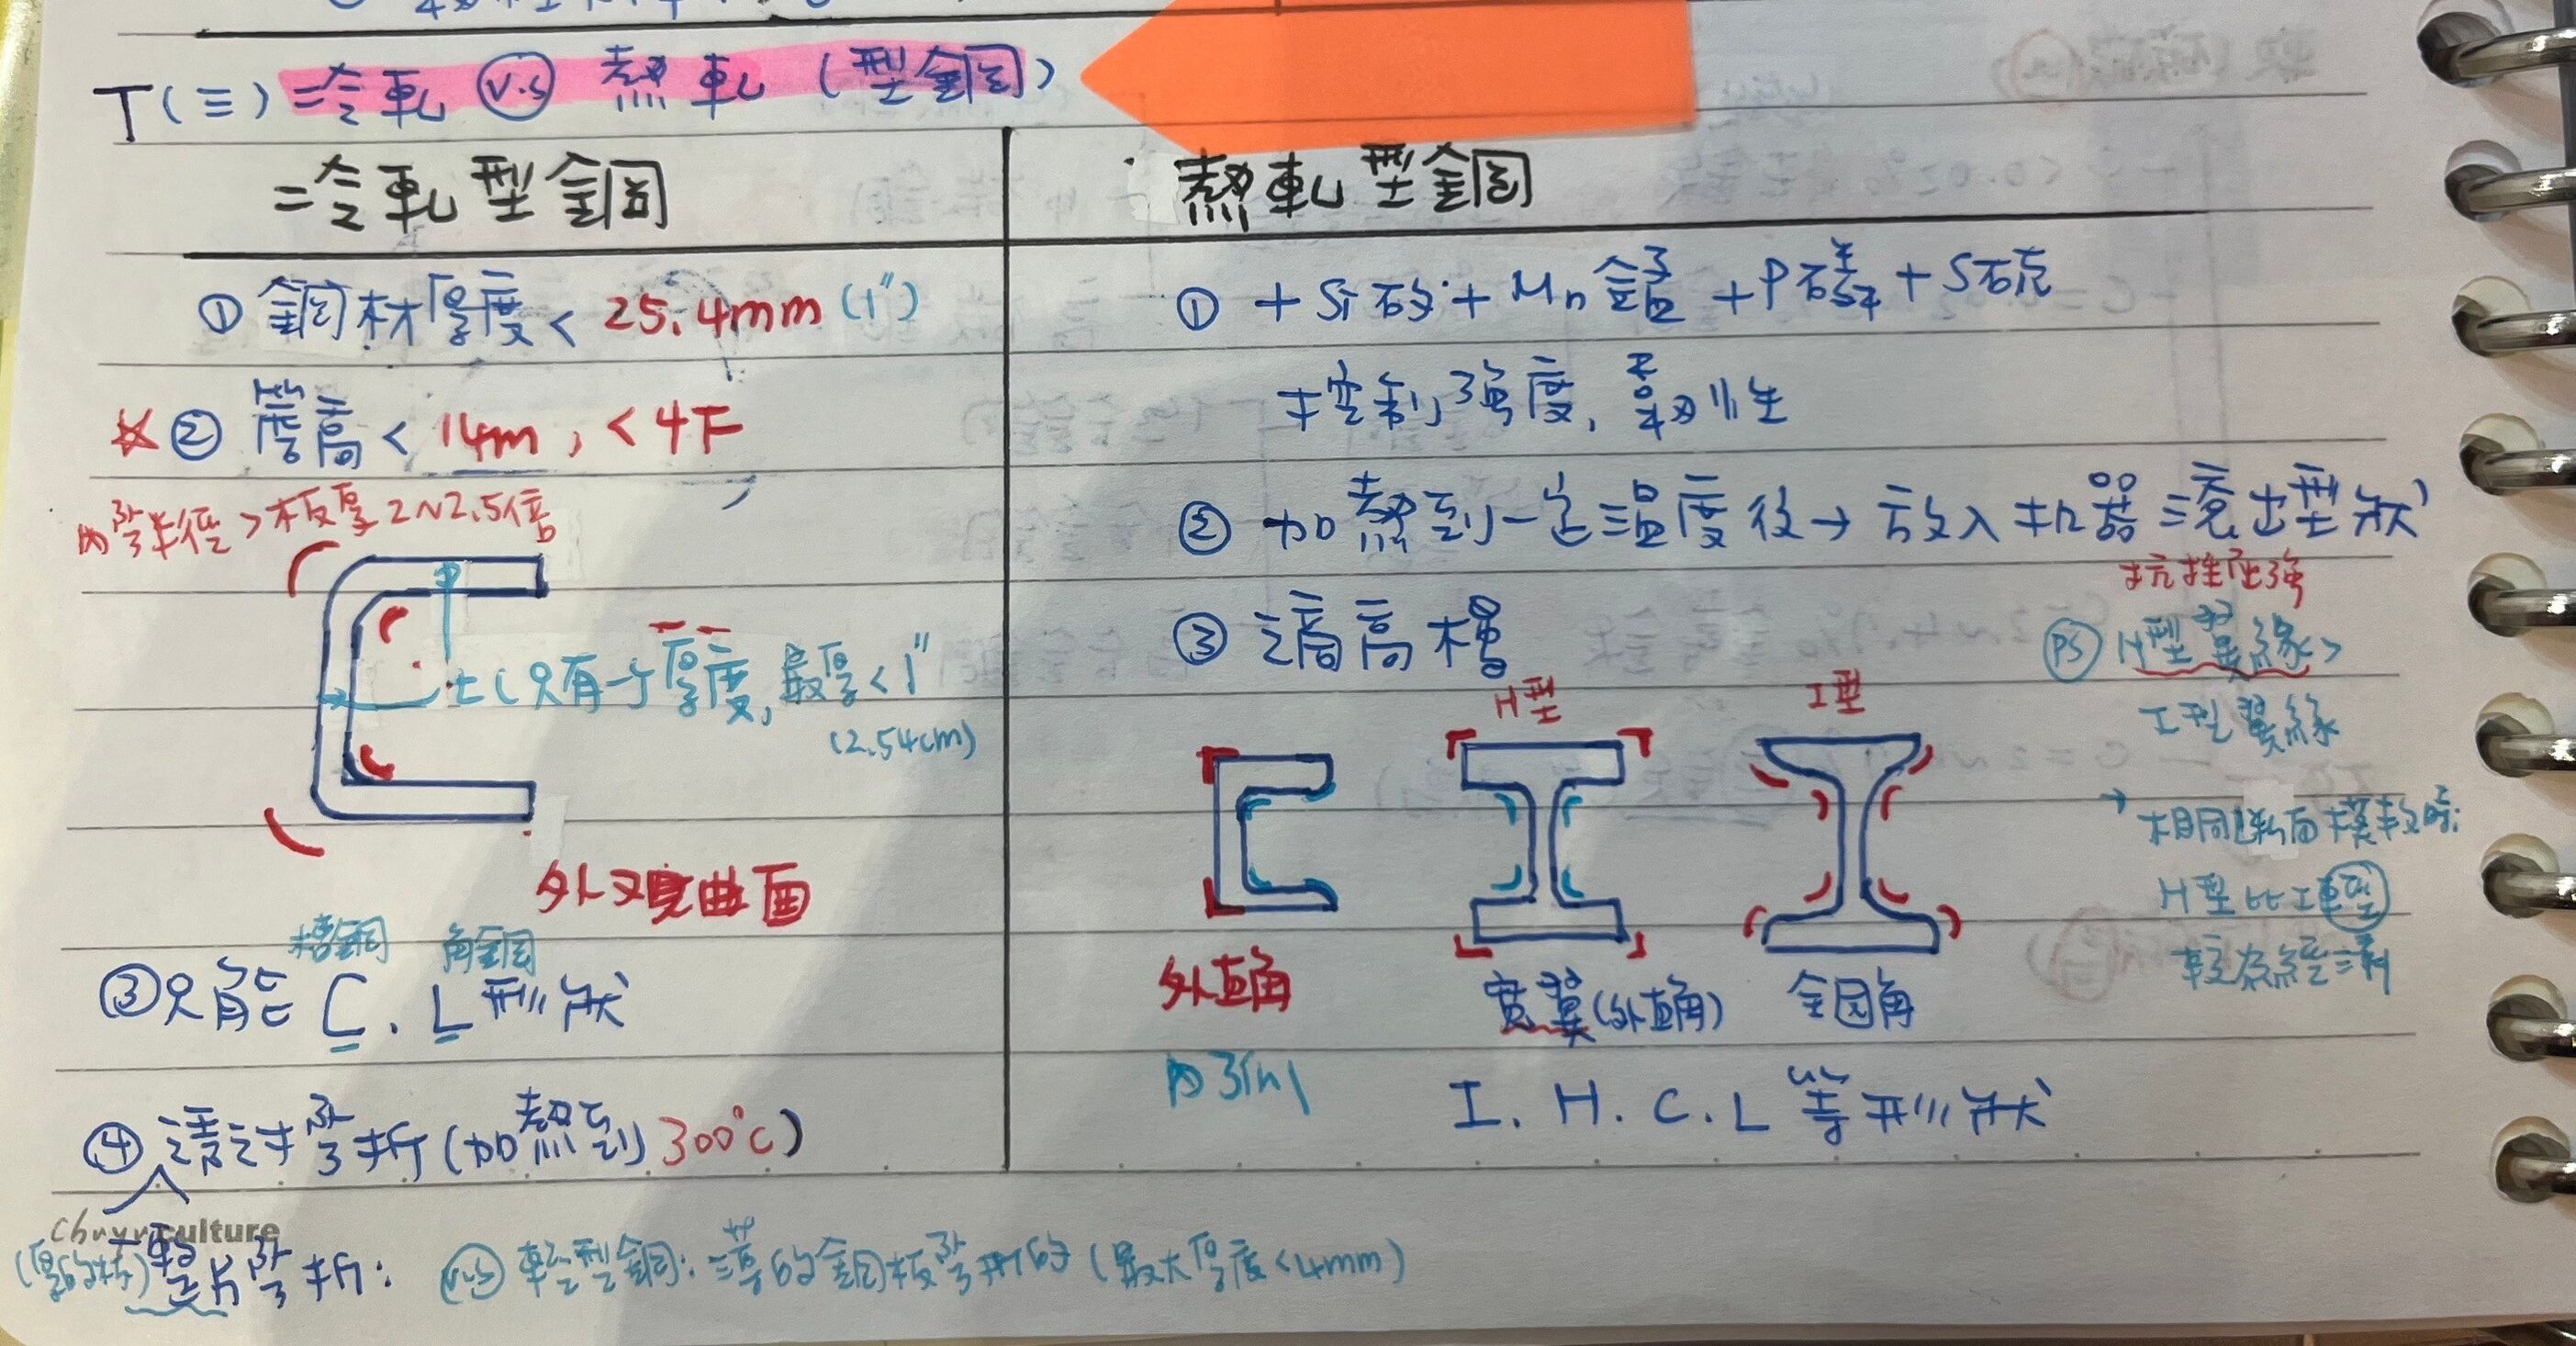 T(三)冷軋 v.s 熱軋 (型鋼)
冷軋型鋼
① 鋼材厚度 < 25.4mm (1")
② 簷高 < 14m, < 4F
內彎半徑 > 板厚2~2.5倍
t (只有一個厚度, 最厚 < 1"
(2.54cm)
外觀曲面
槽鋼 角鋼
③ 只能 C. L 形狀
④ 彎折 (加熱到 300°C)
熱軋型鋼
① + Si矽 + Mn 錳 + P磷 + S硫
控制強度, 韌性
② 加熱到一定溫度後 → 放入机器滾出型狀
③ 適高樓
抗挫屈強
PS H型翼緣 >
I型翼緣
→ 相同斷面模數時:
H型比I型
較為經濟
H型 I型
外直角 寬翼(外直角) 全圓角
I. H. C. L 等形狀
chuyuculture
(厚的材) 整片彎折:
v.s 輕型鋼: 薄的鋼板彎折的 (最大厚度 < 4mm)